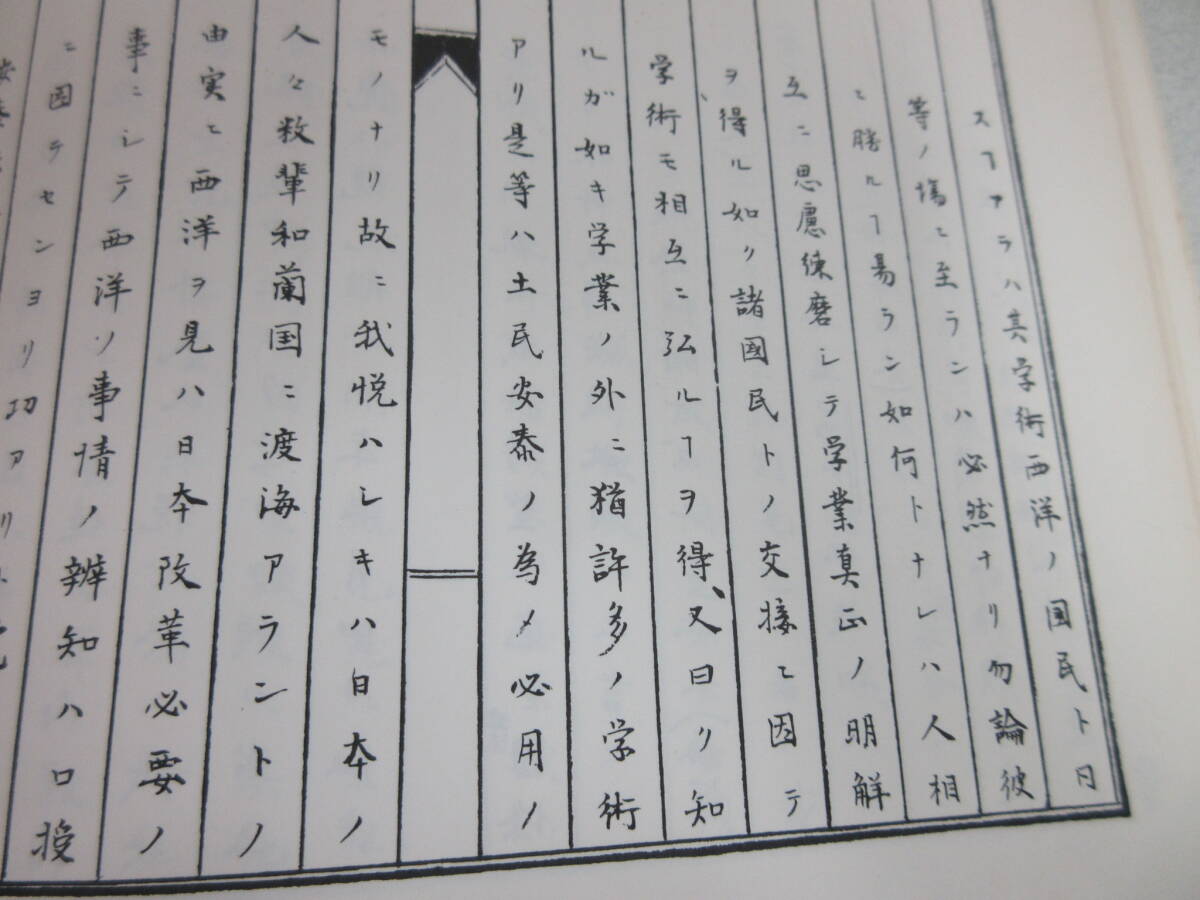 スヿアラハ其学術西洋ノ国民ト日
等ノ塲ニ至ランハ必然ナリ勿論彼
ニ勝ルヿ易ラン如何トナレハ人相
互ニ思慮練磨シテ学業真正ノ明解
ヲ得ル如リ諸國民トノ交接ニ因テ
学術モ相互ニ弘ルヿヲ得、又曰リ知
ルガ如キ学業ノ外ニ猶許多ノ学術
アリ是等ハ土民安泰ノ為メ必用ノ
モノナリ故ニ我悦ハシキハ日本ノ
人々数輩和蘭国ニ渡海アラントノ
由実ニ西洋ヲ見ハ日本改革必要ノ
事ニシテ西洋ノ事情ノ辨知ハ口授
ニ因テセンヨリ功アリ